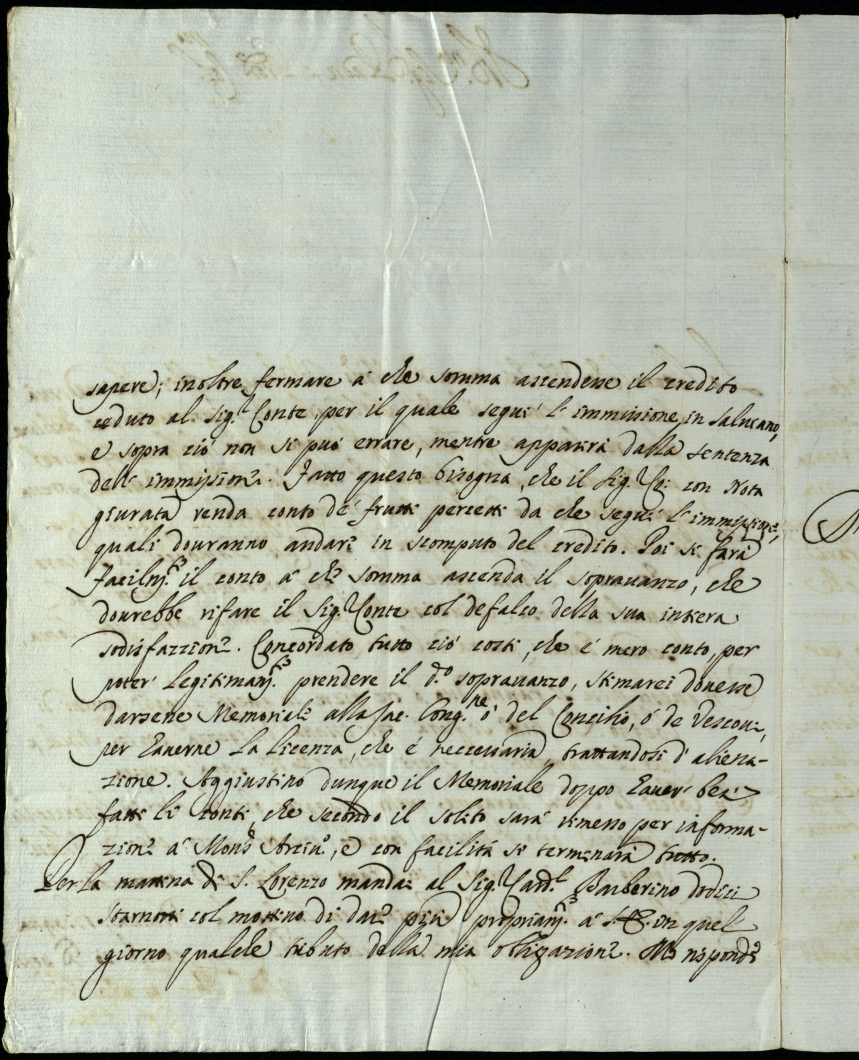 sapere; inoltre fermare à che somma ascendesse il credito
ceduto al Sig.r Conte per il quale seguì l'immissione in Salusano,
e sopra ciò non si può errare, mentre apparirà dalla sentenza
dell'immissione. Fatto questo bisogna, che il Sig.r Co: con Nota
giurata renda conto de' frutti percetti da che seguì l'immissione,
quali dovranno andare in scomputo del credito. Poi si farà
Facilm.te il conto à che somma ascenda il sopravanzo, che
dovrebbe rifare il Sig.r Conte col defalco della sua intera
sodisfazzione. Concordato tutto ciò costì, che è mero conto, per
poter legitimam.te prendere il d.o sopravanzo, stimarei dovesse
darsene Memoriale alla Sac. Cong.ne ò del Concilio, ò de Vescovi,
per haverne la licenza, che è necessaria trattandosi d'aliena-
zione. Aggiustino dunque il Memoriale doppo haver ben
fatti li conti, che secondo il solito sarà rimesso per informa-
zione à Mons.r Arciv.o, e con facilità si terminarà tutto.
Per la mattina di S. Lorenzo mandai al Sig.r Card.l Barberino dodici
starnotti col motivo di dare più propriam.te à S. Em. in quel
giorno qualche tributo della mia obligazione. Mi rispond